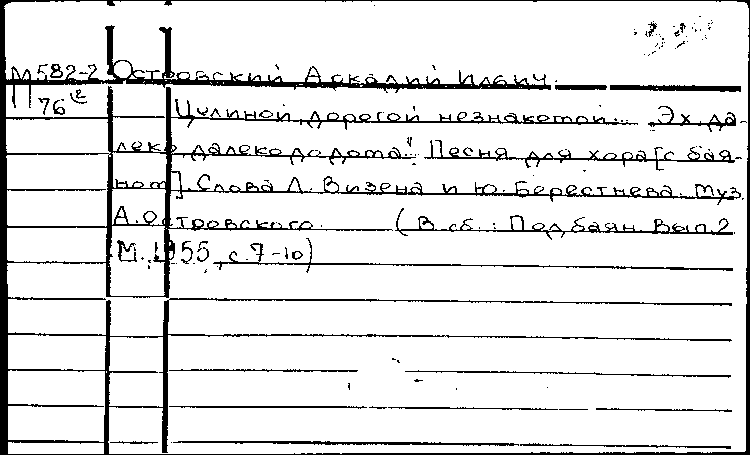 339
М 582-2 Островский, Аркадий Ильич.
П 76 Целиной, дорогой незнакомой... „Эх, да-
леко, далеко до дома". Песня для хора [с бая-
ном]. Слова Л. Визена и Ю. Берестнева. Муз.
А. Островского (В сб.: Под баян. Вып. 2
М., 1955, с. 7-10)